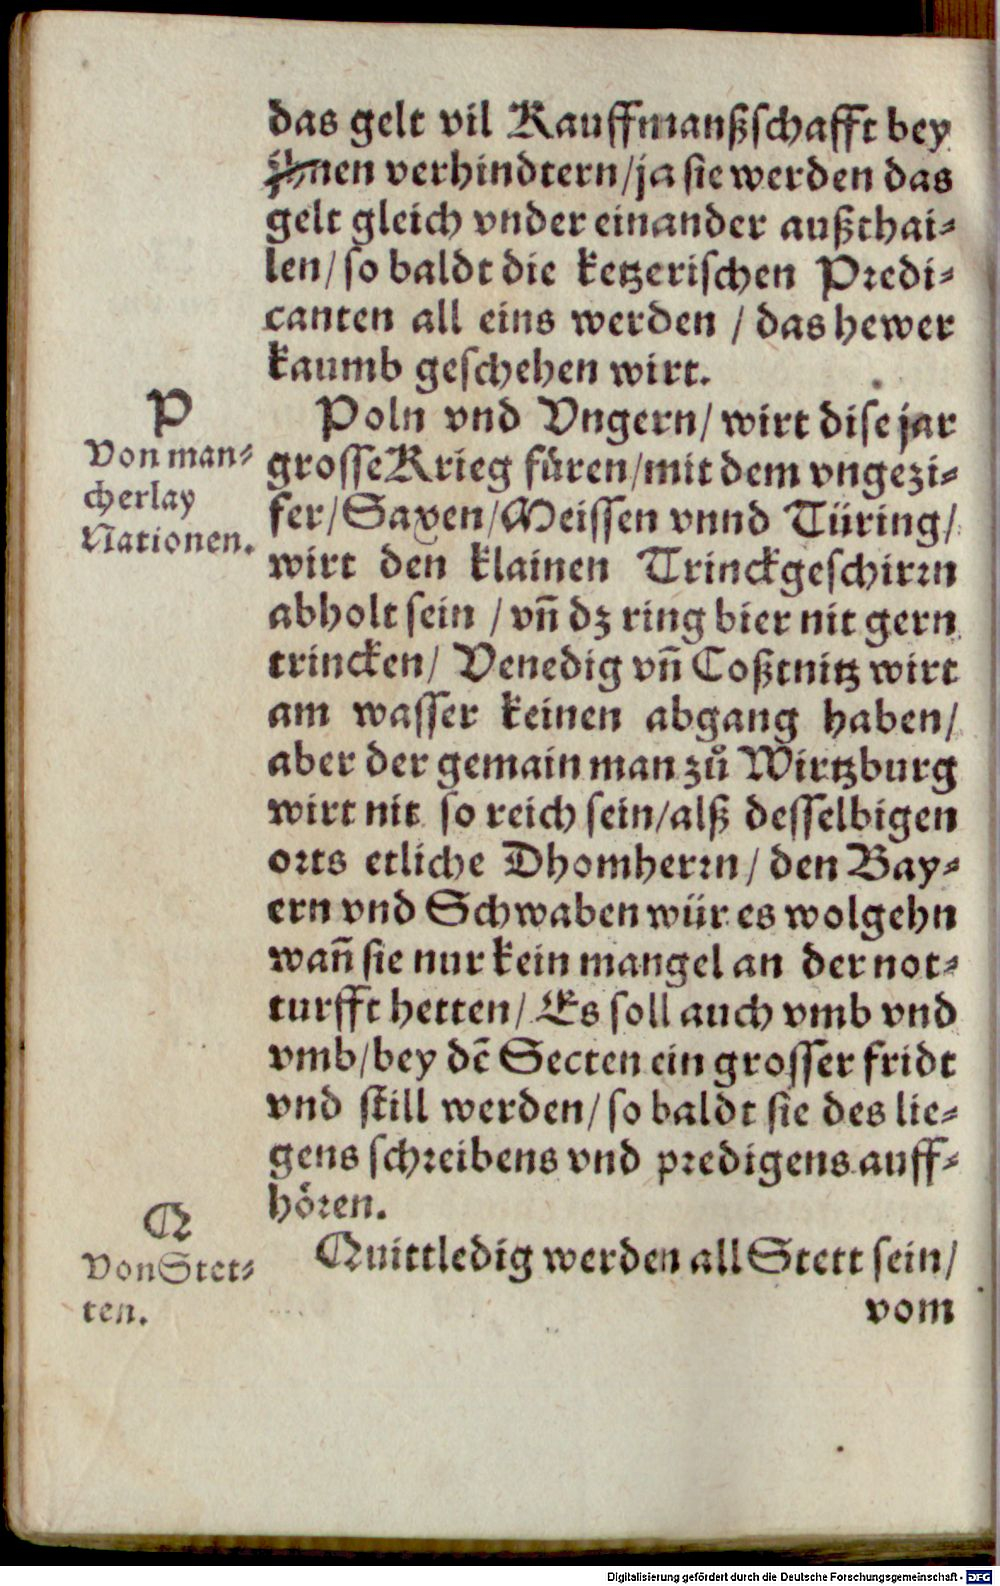 das gelt vil Kauffmanßschafft bey
jhnen verhindtern/ja sie werden das
gelt gleich vnder einander außthai-
len/ so baldt die ketzerischen Predi-
canten all eins werden / das hewer
kaumb geschehen wirt.
P
Von man-
cherlay
Nationen.
Poln vnd Vngern/ wirt dise jar
grosse Krieg füren/mit dem vngezi-
fer/ Saxen/Meissen vnnd Türing/
wirt den klainen Trinckgeschirrn
abholt sein / vn̄ dz ring bier nit gern
trincken/ Venedig vn̄ Coßtnitz wirt
am wasser keinen abgang haben/
aber der gemain man zů Wirtzburg
wirt nit so reich sein/alß desselbigen
orts etliche Dhomherrn/ den Bay-
ern vnd Schwaben wür es wolgehn
wan̄ sie nur kein mangel an der not-
turfft hetten/ Es soll auch vmb vnd
vmb/bey dē Secten ein grosser fridt
vnd still werden/ so baldt sie des lie-
gens schreibens vnd predigens auff-
hören.
Q
Von Stet-
ten.
Quittledig werden all Stett sein/
vom
Digitalisierung gefördert durch die Deutsche Forschungsgemeinschaft - DFG